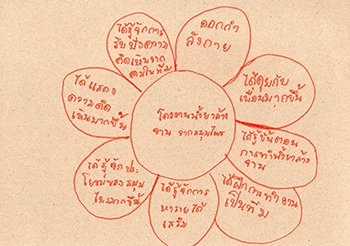 โครงงานน้ำยาล้าง
จาน จากสมุนไพร
ออกกำ
ลังกาย
ได้คุยกับ
เพื่อนมากขึ้น
ได้รู้ขั้นตอน
การทำน้ำยาล้าง
จาน
ได้ฝึกการทำงาน
เป็นทีม
ได้รู้จักการ
หารายได้
เสริม
ได้รู้จักประ
โยชน์ของสมุน
ไพรมากขึ้น
ได้แสดง
ความคิด
เห็นมากขึ้น
ได้รู้จักการ
รับฟังความ
คิดเห็นจาก
คนในทีม